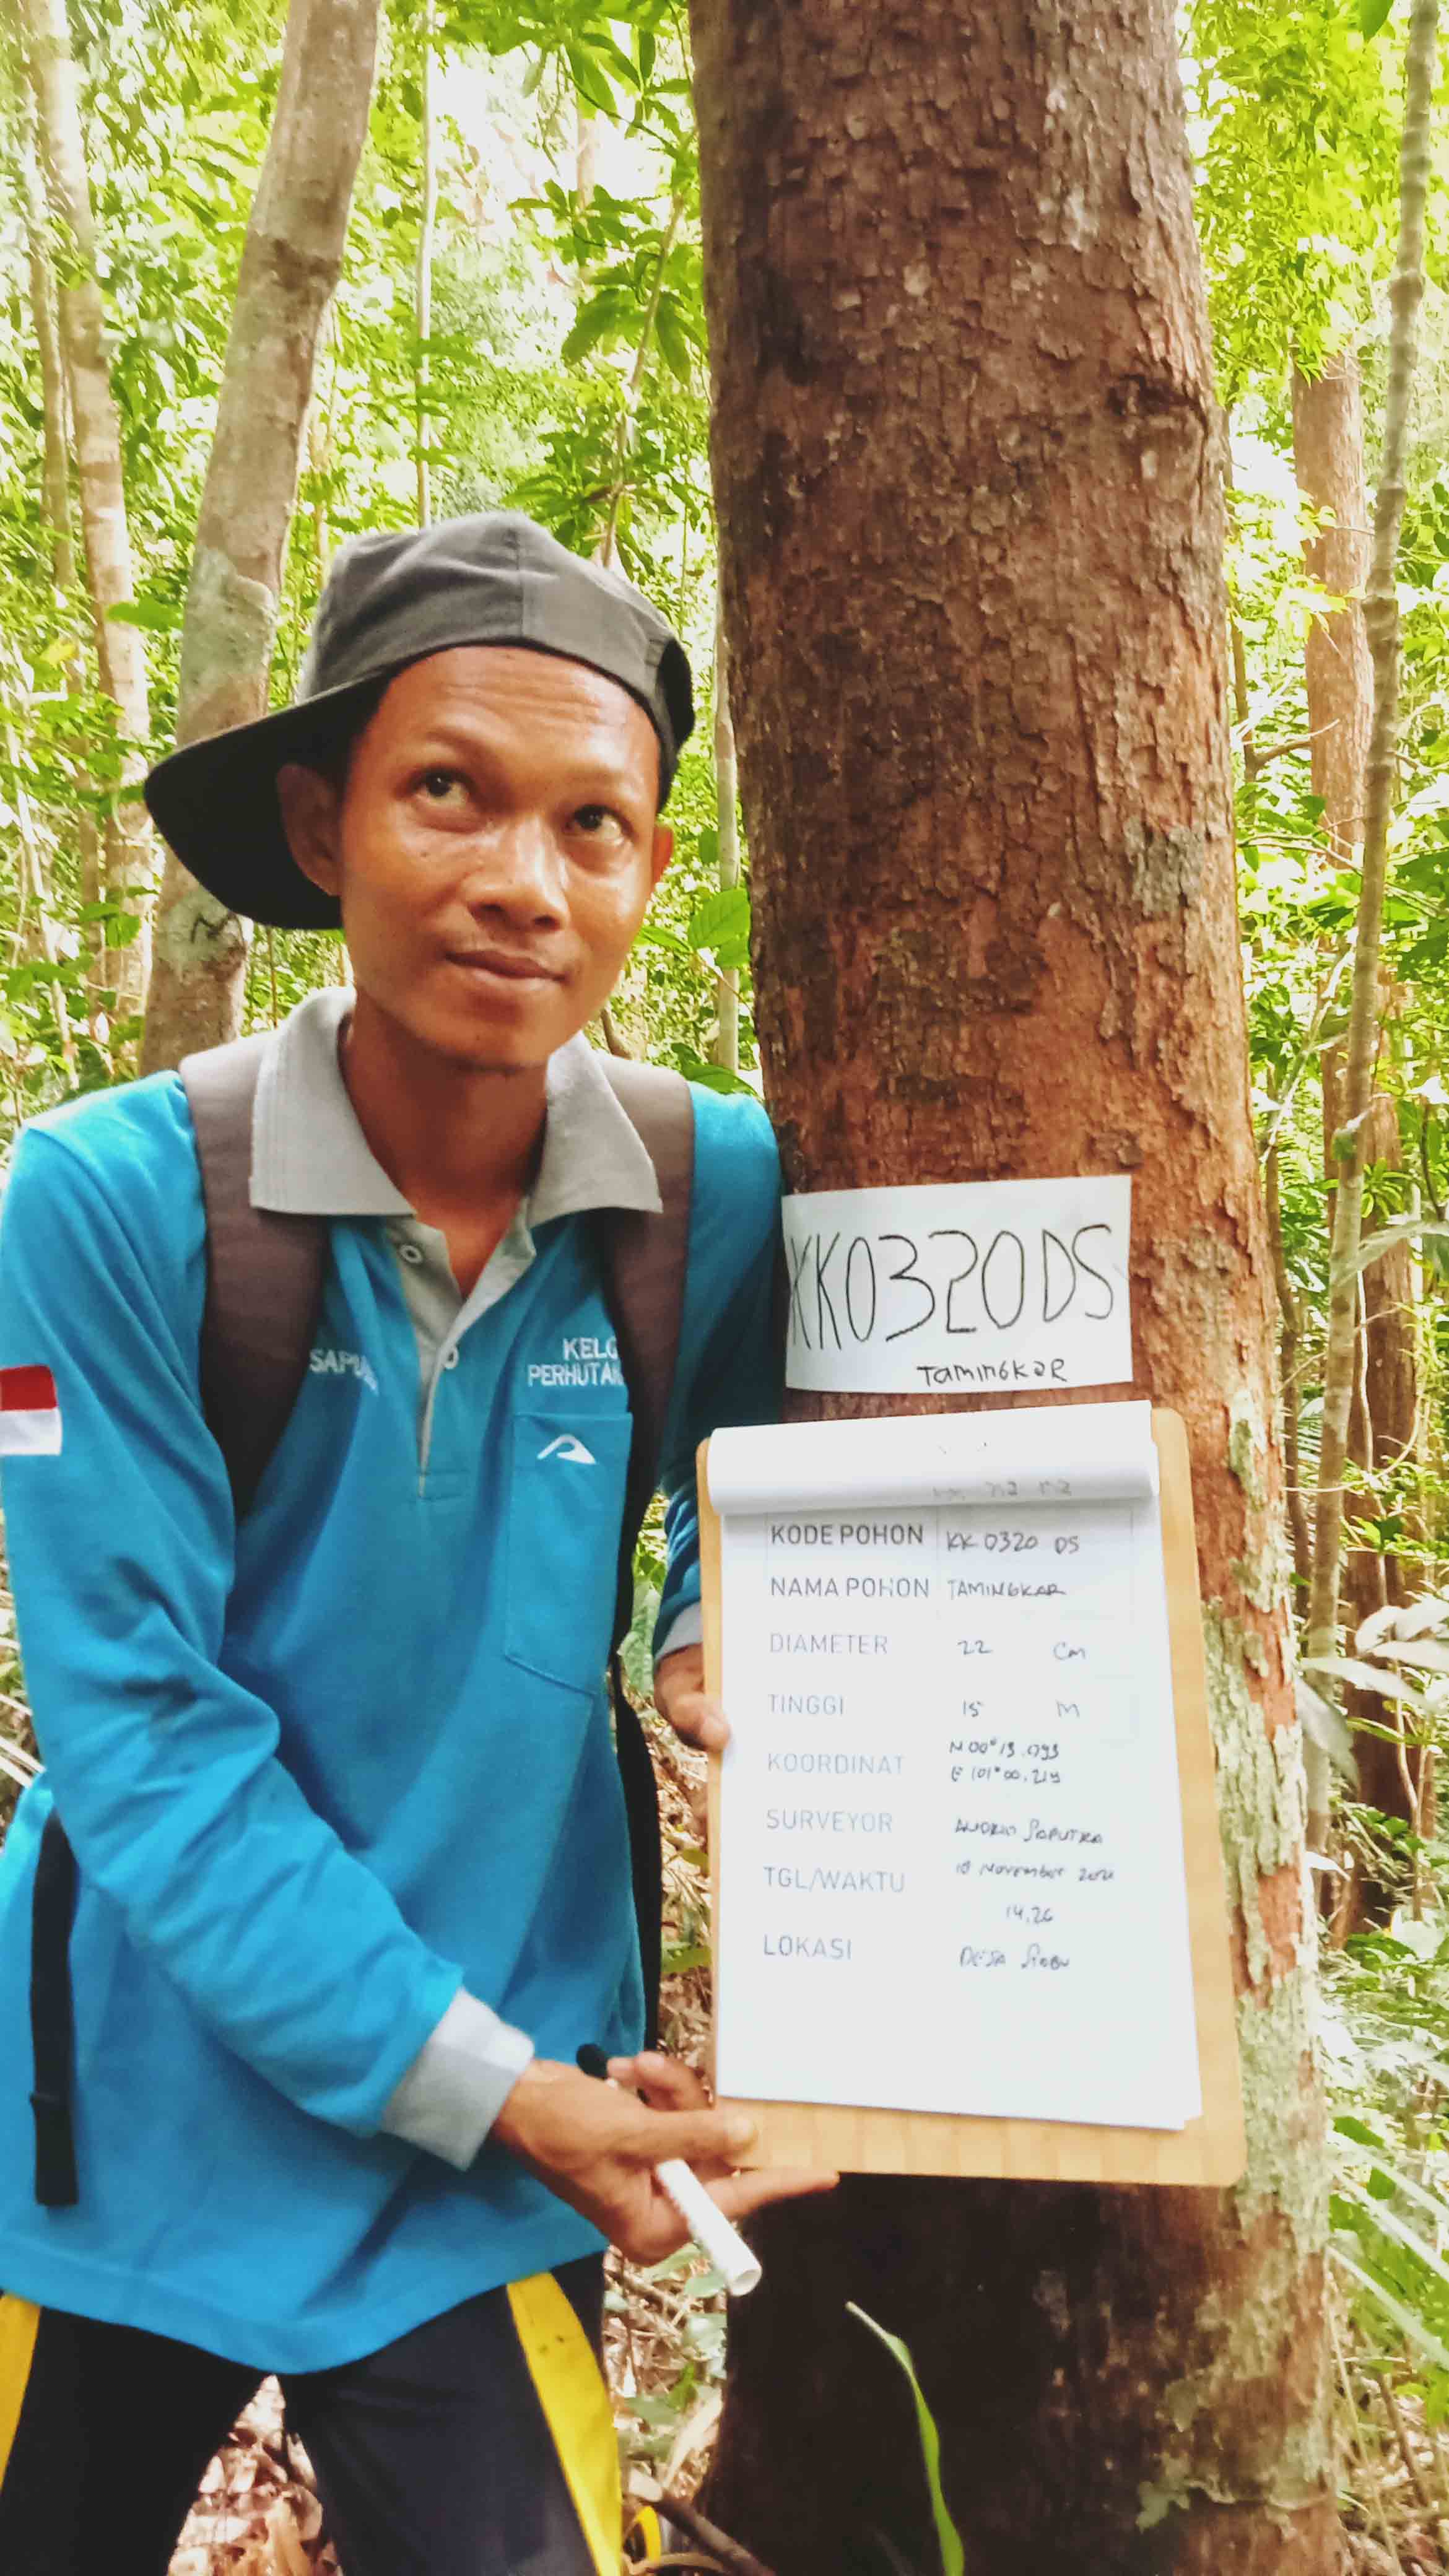 KELO
PERHUTAN
KK0320DS
TamingkaR
KODE POHON KK 0320 DS
NAMA POHON TAMINGKAR
DIAMETER 22 Cm
TINGGI 15 M
KOORDINAT
E 101°00.219
SURVEYOR SAPUTRA
TGL/WAKTU November
14.26
LOKASI DESA